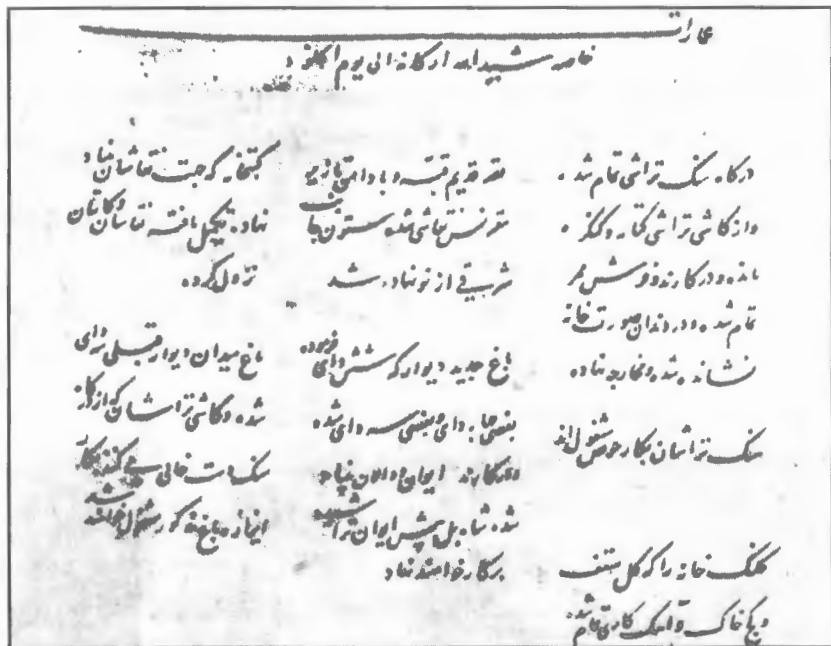 عمارات
خاصه شیدا الله ارکانه الی یوم الخلود
درگاه سنگ تراشی تمام شده
و از کاشی تراشی کتابه و کنگره
مانده و در کارند و فرش ممر
تمام شده و در دندان صورت خانه
نشانده شده و خارجه نهاده
سنگ تراشان بکار حوض مشغول اند
گلنگ خانه را که گل سقف
و کج خاک و آهک کاری تمام شد
مقر قدیم قبه و بادامی تازیر
مقرنس نقاشی شده ستون جانب
شرقی از نو نهاده شد
باغ جدید دیوار که شش دای فرموده
بعضی جا دو دای و بعضی سه دای شده
و در کارند ایوان و دالان بنیاد
شده شاه بل پیش ایوان تراشیده
بر کار خواهند نهاد
کتبخانه که جهت نقاشان بنیاد
نهاده تکمیل یافته نقاشان و کاتبان
نزول کرده
باغ میدان دیوار قبلی دو دای
شده و کاشی تراشان که از کار
دست خالی می کنند بکار
ازاره باغ مذکور مشغول خواهند شد